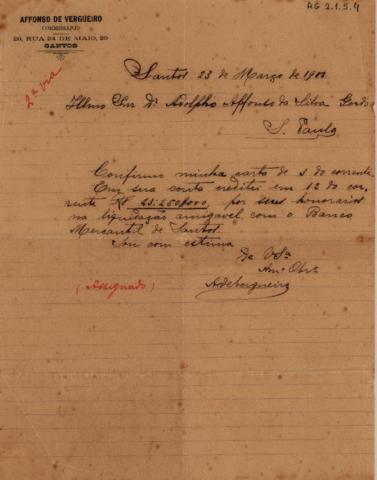 AG 2.1.5.4
AFFONSO DE VERGUEIRO
COMMISSARIO
20, RUA 24 DE MAIO, 20
SANTOS
2ª via
Santos 23 de Março de 1900
Illmo Snr Dr Adolpho Affonso da Silva Gordo
S. Paulo
Confirmo minha carta de 3 do corrente.
Em sua conta creditei em 12 do cor-
rente Rs 23:250$000, por seus honorarios
na liquidação amigavel com o Banco
Mercantil de Santos.
Sou com estima
De VSª
Amº Obrº
(Assignado)
AdeVergueiro